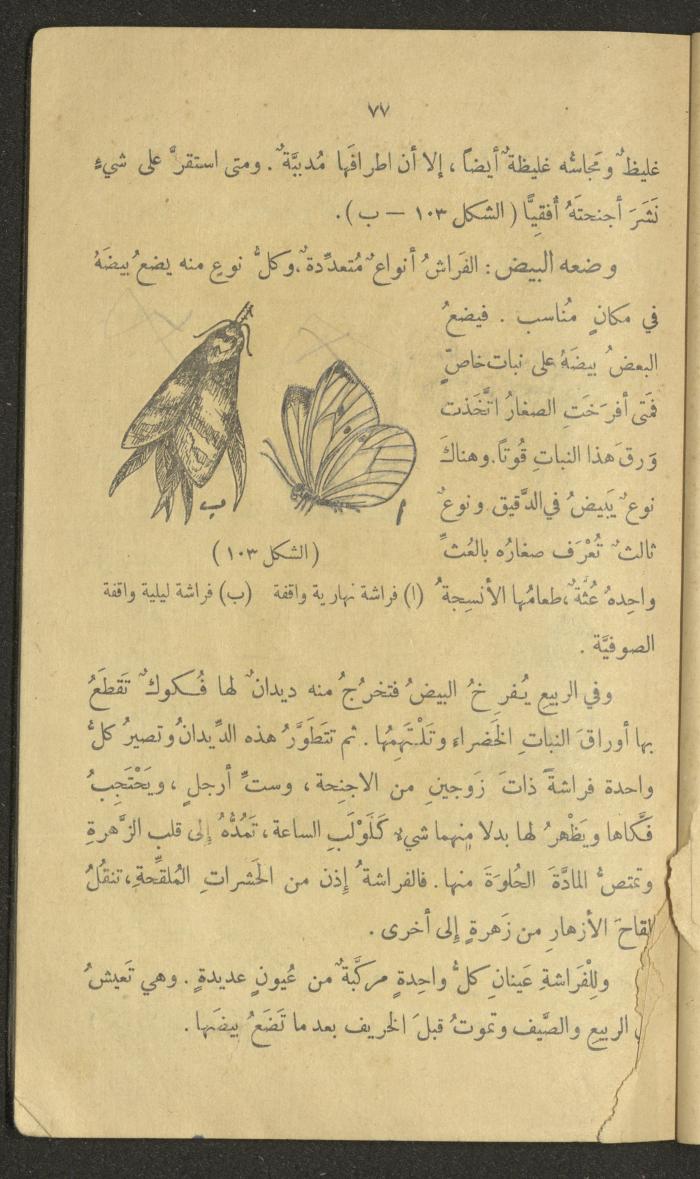 ٧٧
غليظٌ ومَجاسُّه غليظةٌ أيضاً ، إلا أن اطرافَها مُدبَّبَةٌ . ومتى استقرَّ على شيءٍ
نَشَرَ أجنحتَهُ أُفقِيًّا ( الشكل ١٠٣ — ب ) .
وضعه البيض : الفَراشُ أنواعٌ مُتعدِّدةٌ ، وكلُّ نوعٍ منه يضعُ بيضَهُ
في مكانٍ مُناسب . فيضعُ
البعضُ بيضَهُ على نبات خاصٍّ
فمَتى أفرَخَتِ الصغارُ اتَّخَذت
وَرقَ هذا النباتِ قُوتاً . وهناكَ
نوعٌ يَبيضُ في الدَّقيق ونوعٌ
ثالثٌ تُعْرَف صغارُه بالعُثِّ
واحِدهُ عُثَّةٌ ، طعامُها الأنسِجةُ
الصوفيَّة .
ا
ب
( الشكل ١٠٣ )
(ا) فراشة نهارية واقفة (ب) فراشة ليلية واقفة
وفي الربيعِ يُفرِخُ البيضُ فتخرُجُ منه ديدانٌ لها فُكوكٌ تَقطَعُ
بها أوراقَ النباتِ الخَضراء وتَلْتَهِمُها . ثم تتَطَوَّرُ هذه الدِّيدانُ وتصيرُ كلُّ
واحدة فراشةً ذاتَ زَوجينِ من الاجنِحة ، وستِّ أرجلٍ ، ويَحْتَجِبُ
فَكّاها ويَظْهرُ لها بدلا مِنهما شيءٌ كَلَوْلَبِ الساعة ، تَمُدُّهُ إلى قلبِ الزَّهرةِ
وتمتصُّ المادَّةَ الحُلوَةَ منها . فالفراشةُ إذن من الحَشراتِ المُلقِّحةِ ، تنقُلُ
لقاحَ الأزهارِ من زَهرةٍ إلى أخرى .
وللْفَراشةِ عَينانِ كلُّ واحِدةٍ مركَّبةٌ من عُيونٍ عديدةٍ . وهي تَعيشُ
الربيعِ والصَّيف وتموتُ قبلَ الخريف بعد ما تَضَعُ بيضَها .